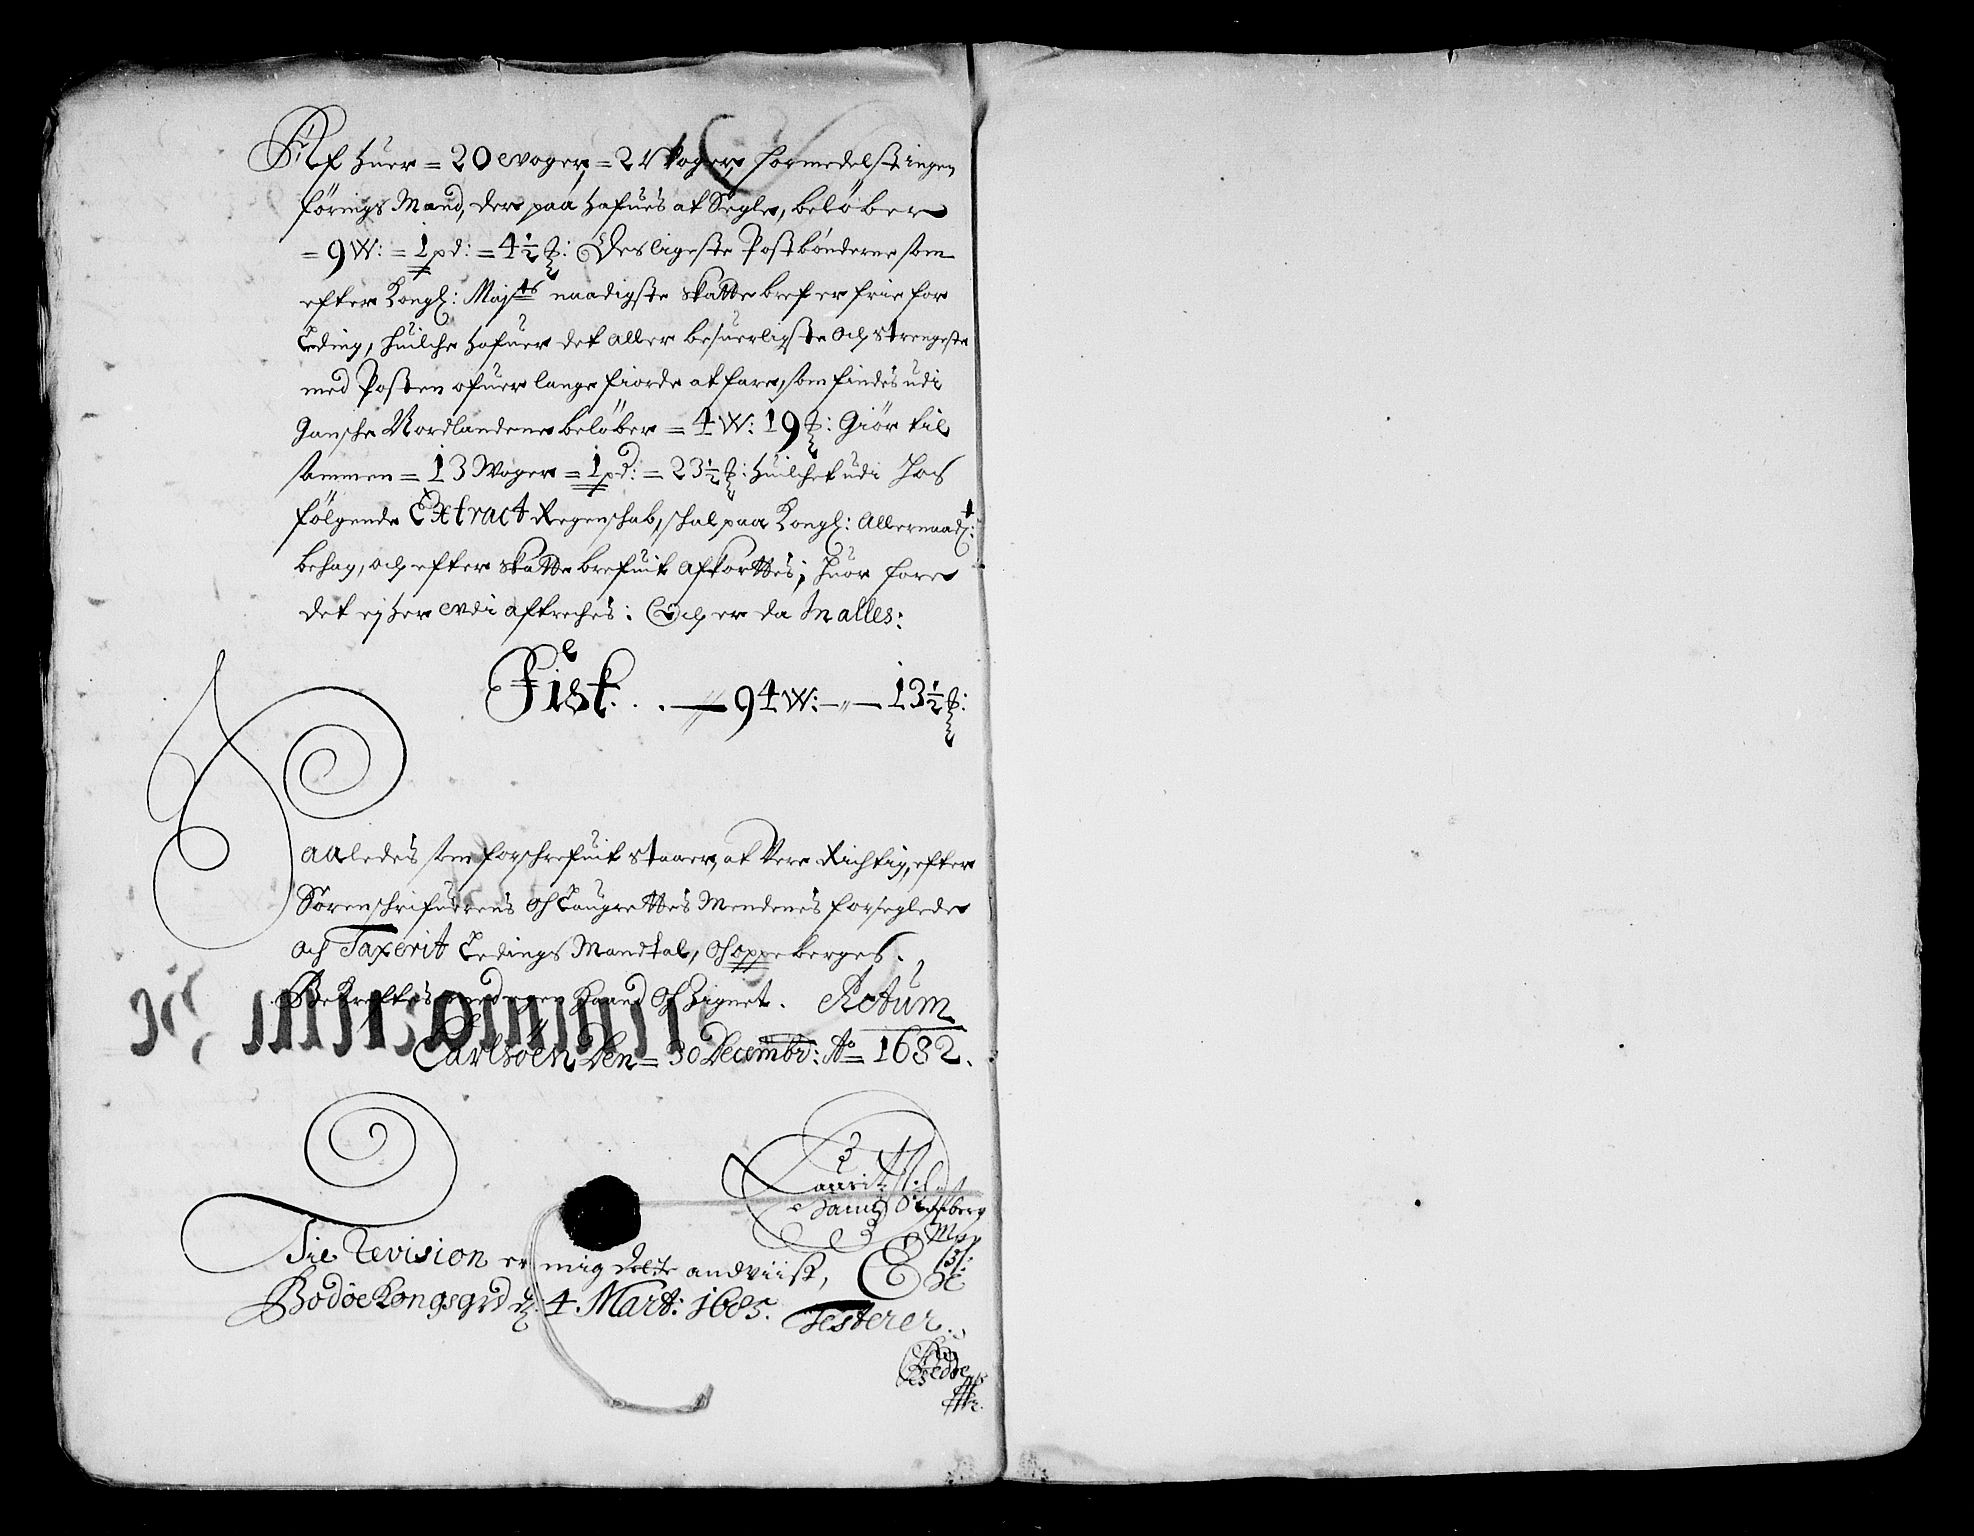 Af huer = 20 woger = 2 Woger, formedelst ingen
förings Mand, der paa hafues at Segle, belöber
= 9 W: = 1 pd: = 4½ ℔: Desligeste Postbönderne som
efter Kongl: Majts naadigste skatte bref er frie for
Leding, huilche hafuer det aller besuerligste och strengeste
med Posten ofuer lange fiorde at fare, som findes udi
Gansche Nordlandene belöber = 4 W: 19 ℔: Giör til
sammen = 13 Woger = 1 pd: = 23½ ℔: huilchet udi hos
fölgende Extract Regenschab, schal paa Kongl: Allernaadst:
behag, och efter skatte brefuit afkorttes; huor fore
det ej her wdi aftreches: Och er da In alles:
Fisk . . — 94 W: — „ — 13½ ℔:
Saaledes som forschrefuit staaer, at Vere Richtig, efter
Sorenschrifuerens och Laugrettes Mendenes forseglede
och Taxerit Ledings Mandtal, och oppeberges.
Bekreftes med egen Haand och Zignet. Actum
Carlsöen Den = 30 Decembr: Ao 1682.
Lauritz
Til Revision er mig dette andviist,
Bodöe Kongsgrd d: 4 Mart: 1685. Testerer.